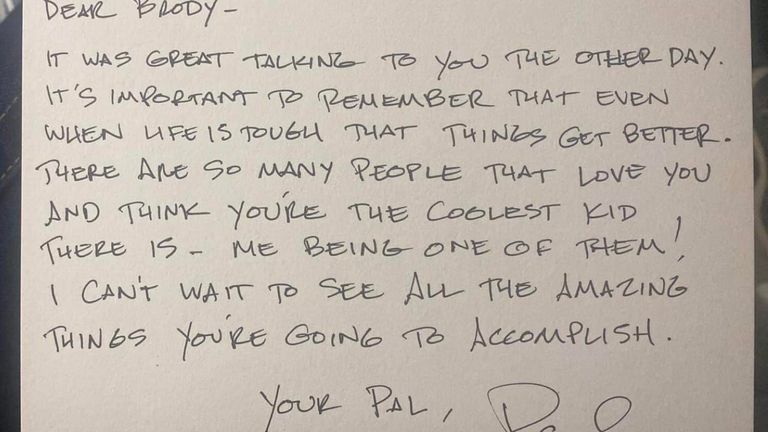 DEAR BRODY-
IT WAS GREAT TALKING TO YOU THE OTHER DAY.
IT'S IMPORTANT TO REMEMBER THAT EVEN
WHEN LIFE IS TOUGH THAT THINGS GET BETTER.
THERE ARE SO MANY PEOPLE THAT LOVE YOU
AND THINK YOU'RE THE COOLEST KID
THERE IS - ME BEING ONE OF THEM!
I CAN'T WAIT TO SEE ALL THE AMAZING
THINGS YOU'RE GOING TO ACCOMPLISH.
YOUR PAL,